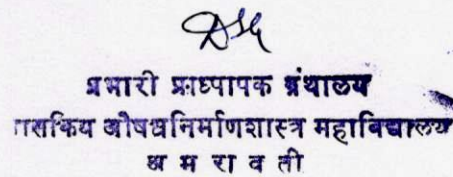 प्रभारी प्राध्यापक ग्रंथालय
ासकिय औषधनिर्माणशास्त्र महाविद्यालय
अ म रा व ती